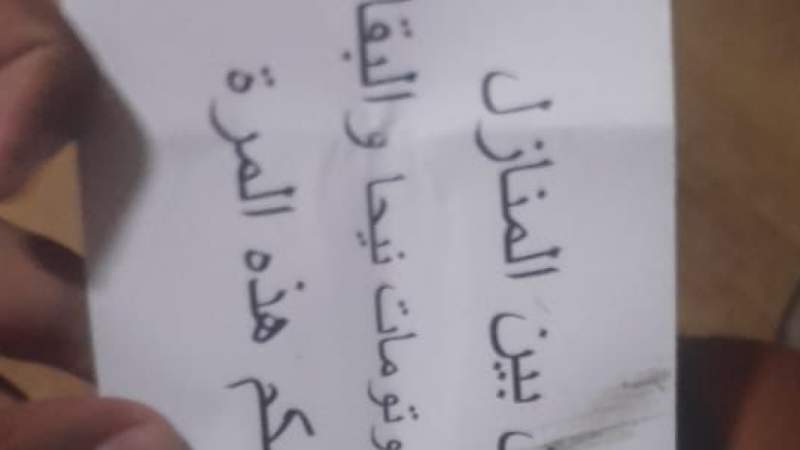 بين المنازل
وتومات نيحا و البقا
كم هذه المرة